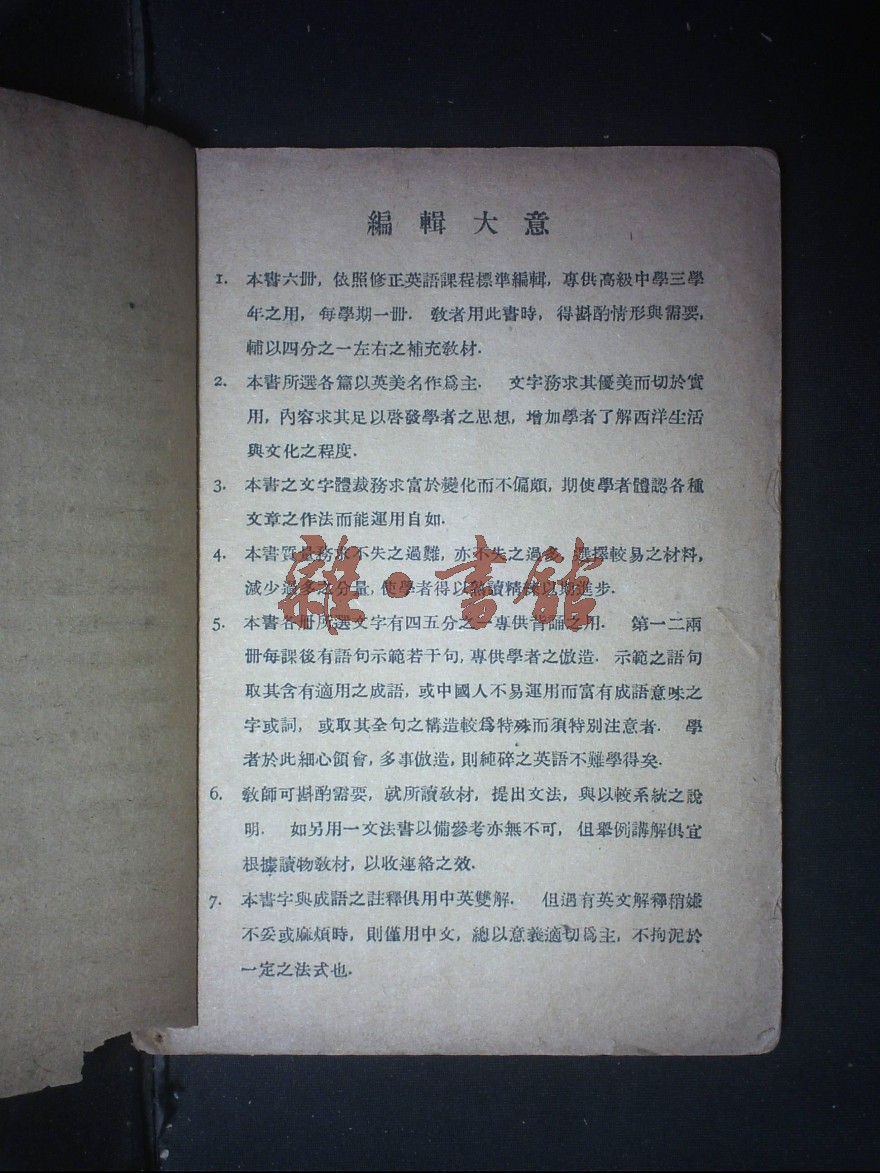 編輯大意
1. 本書六册，依照修正英語課程標準編輯，專供高級中學三學
年之用，每學期一册．教者用此書時，得斟酌情形與需要，
輔以四分之一左右之補充教材．
2. 本書所選各篇以英美名作爲主．文字務求其優美而切於實
用，內容求其足以啓發學者之思想，增加學者了解西洋生活
與文化之程度．
3. 本書之文字體裁務求富於變化而不偏頗，期使學者體認各種
文章之作法而能運用自如．
4. 本書質量務求不失之過難，亦不失之過多，選擇較易之材料，
減少過多之分量，使學者得以熟讀精練以期進步．
5. 本書各册所選文字有四五分之一專供背誦之用．第一二兩
册每課後有語句示範若干句，專供學者之倣造．示範之語句
取其含有適用之成語，或中國人不易運用而富有成語意味之
字或詞，或取其全句之構造較爲特殊而須特別注意者．學
者於此細心領會，多事倣造，則純碎之英語不難學得矣．
6. 教師可斟酌需要，就所讀教材，提出文法，與以較系統之說
明．如另用一文法書以備參考亦無不可，但舉例講解俱宜
根據讀物教材，以收連絡之效．
7. 本書字與成語之註釋俱用中英雙解．但遇有英文解釋稍嫌
不妥或麻煩時，則僅用中文，總以意義適切爲主，不拘泥於
一定之法式也．
雜·書館